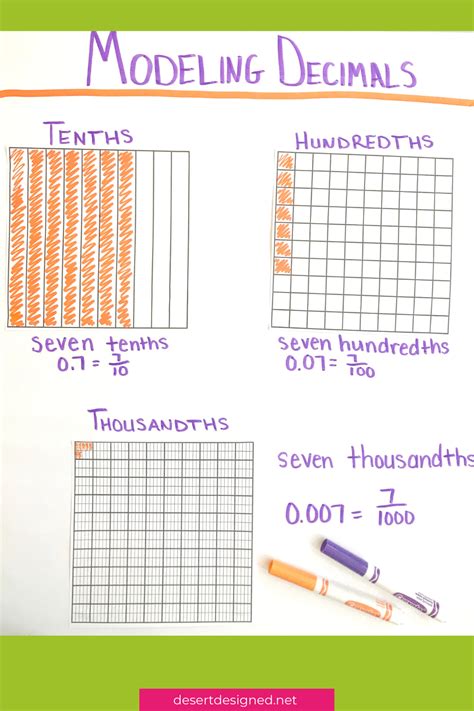 MODELING DECIMALS
TENTHS
seven tenths
0.7 = 7/10
HUNDREDTHS
seven hundredths
0.07 = 7/100
THOUSANDTHS
seven thousandths
0.007 = 7/1000
desertdesigned.net